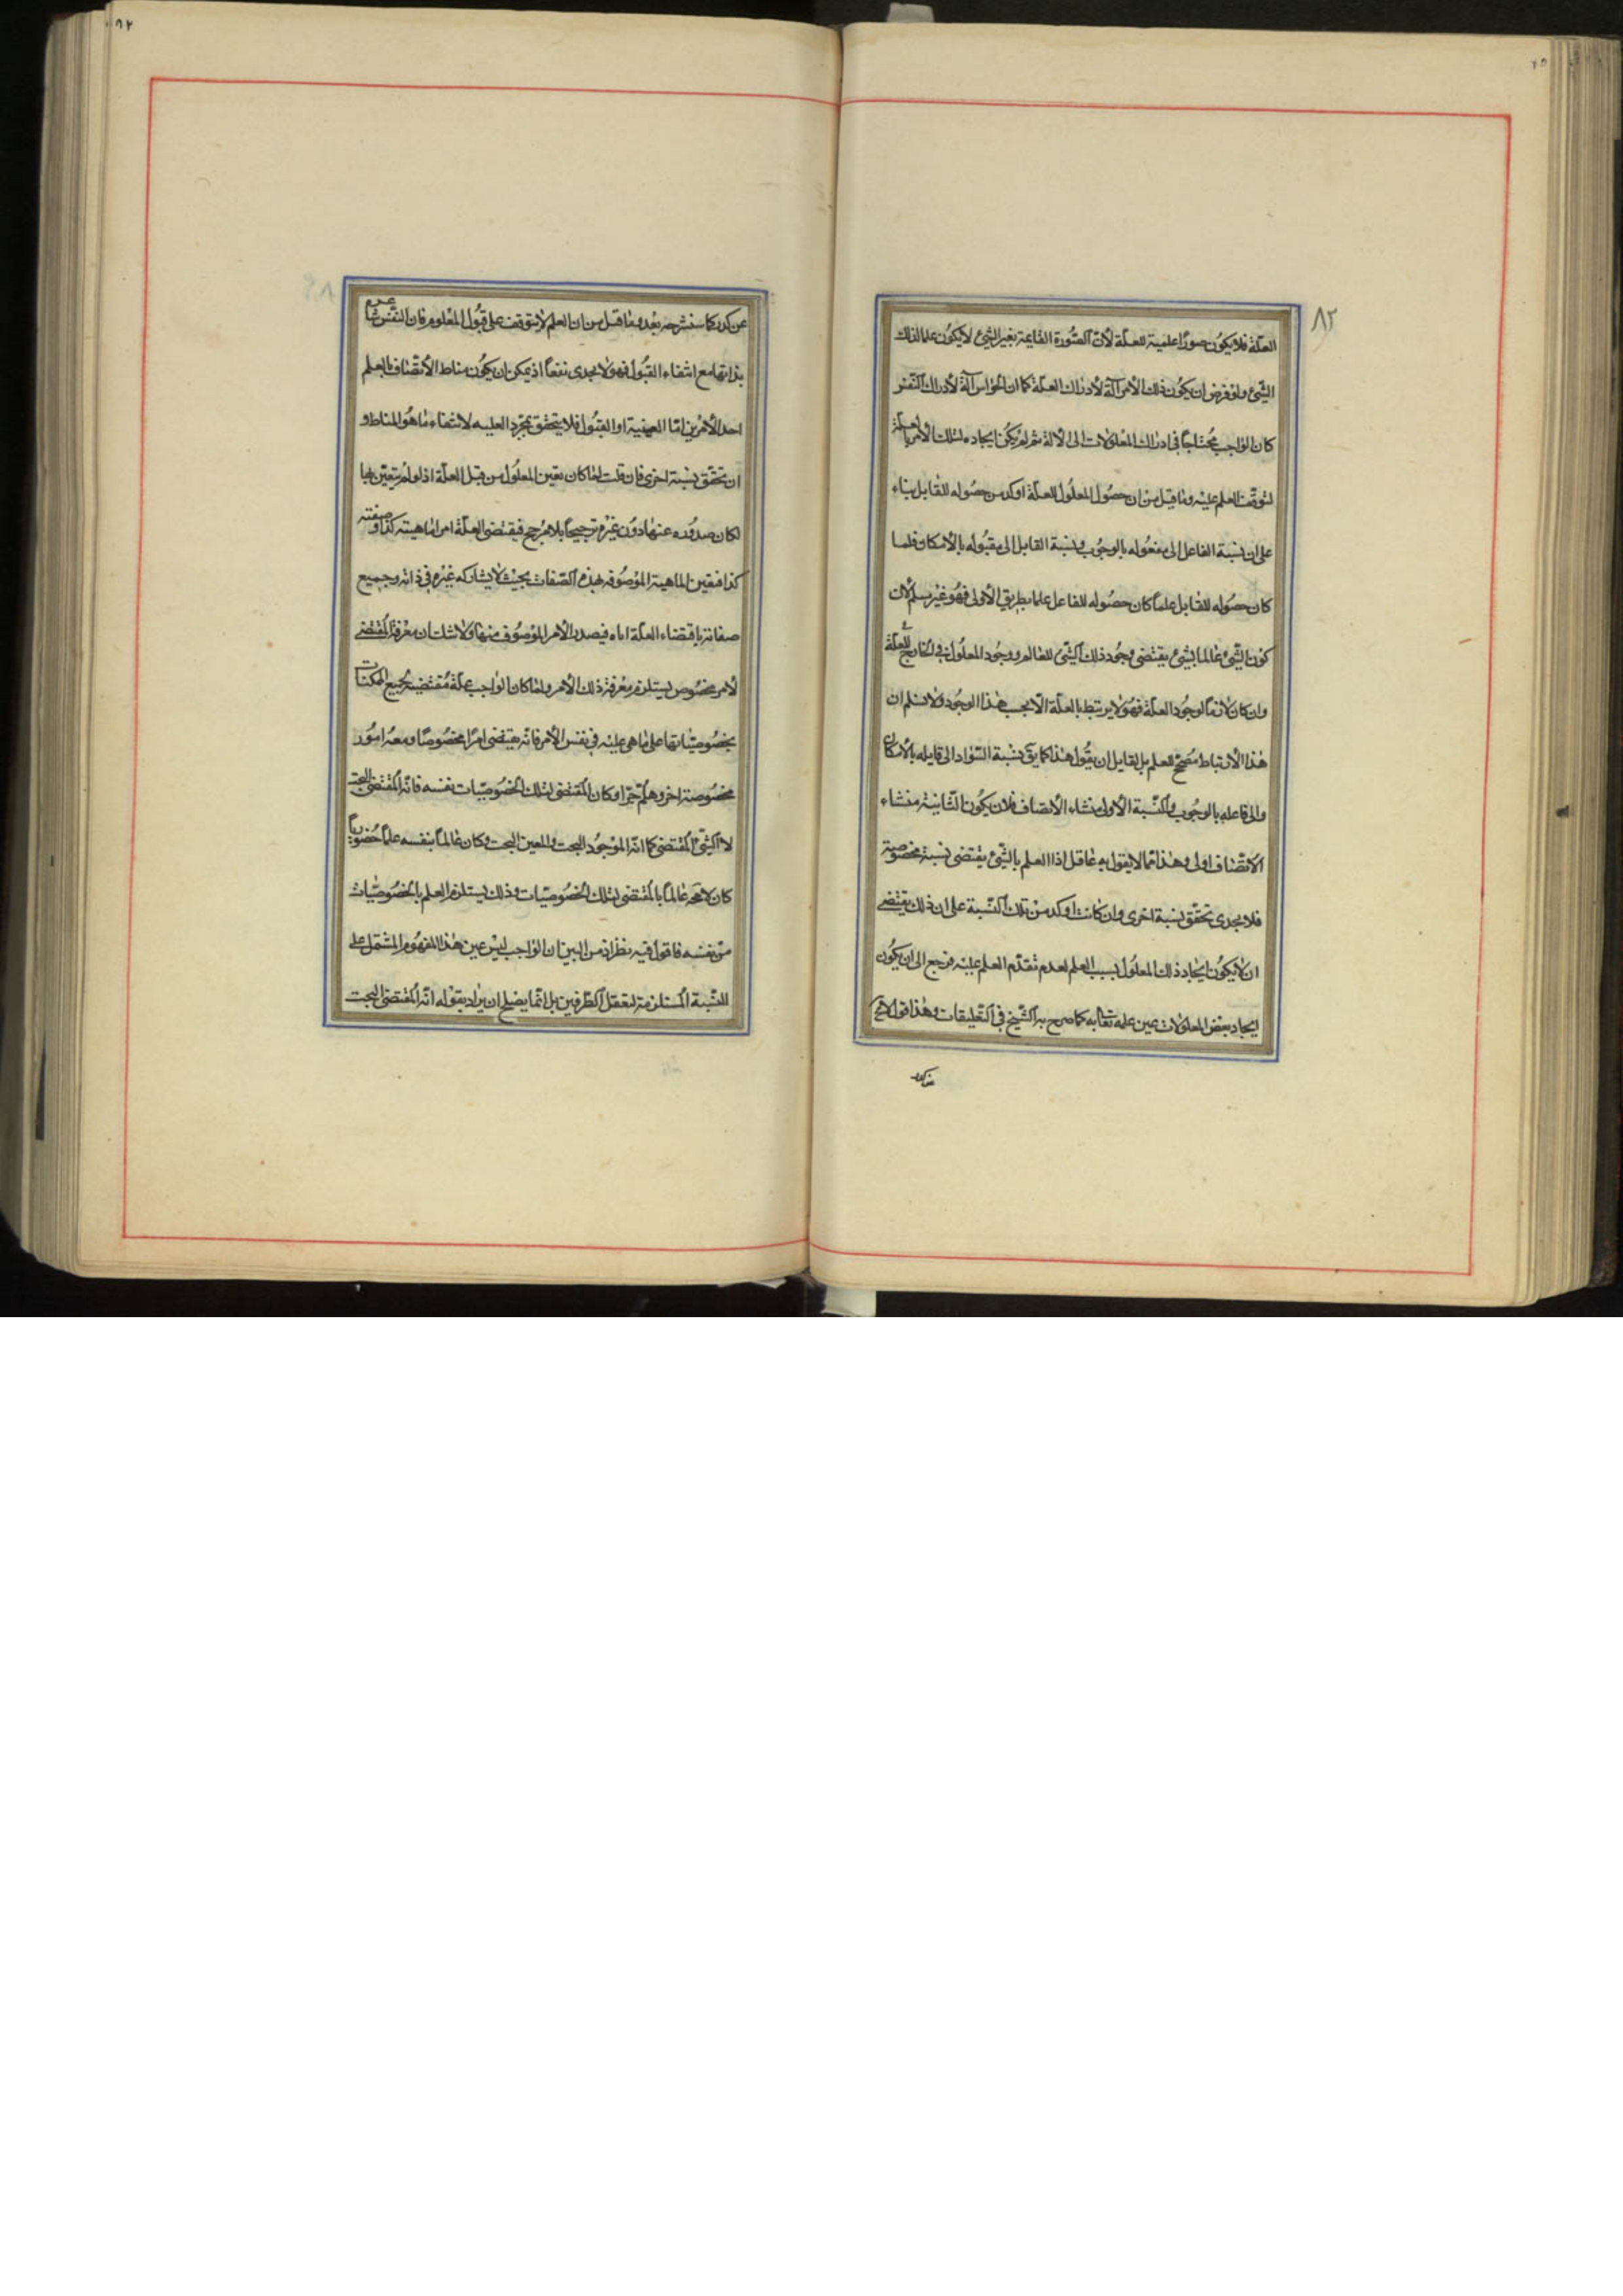 ٨٢
العلّة فلا يكون صورًا علمية للعلّة لأنّ الصّورة القائمة بغير الشئ لا يكون علما لذلك
الشّئ ولو فرض ان يكون ذلك الأمر آلة لأدراك العلّة كما ان الحواس آلة لأدراك النّفس
كان الواجب محتاجًا فى ادراك المعلولات الى الألة ثم لم يكن ايجاده لتلك الأمر بالعلم
لتوقّف العلم عليه وما قيل من ان حصول المعلول للعلّة اوكد من حصوله للقابل بناء
على ان نسبة الفاعل الى مفعوله بالوجوب ونسبة القابل الى مقبوله بالأمكان فلما
كان حصوله للقابل علماً كان حصوله للفاعل علما بطريق الأولى فهو غير مسلم لأن
كون الشّئ عالما بشئ يقتضى وجود ذلك الشّئ للعالم ووجود المعلول فى الخارج للعلّة
وان كان لازماً لوجود العلّة فهو لا يرتبط بالعلّة الّا بحسب هذا الوجود ولا نسلم ان
هذا الأرتباط مصحّح للعلم بل لقايل ان يقول هذا كما يق نسبة السّواد الى قابله بالأمكان
والى فاعله بالوجوب والنّسبة الأولى منشاء الأتصاف فلان يكون الثّانية منشاء
الاتّصاف اولى وهذا ممّا لا يقول به عاقل اذا العلم بالشّئ يقتضى نسبة مخصوصة
فلا يجدى تحقّق نسبة اخرى وان كانت أوكد من تلك النّسبة على ان ذلك يقتضى
ان لا يكون ايجاد ذلك المعلول بسبب العلم لعدم تقدّم العلم عليه فرجع الى ان يكون
ايجاد بعض المعلولات عين علمه تعالى به كما صرح به الشّيخ فى التّعليقات وهذا قول لا يخ
عن كدر كما سنشرحه بعد وما قيل من ان العلم لا يتوقف على قبول المعلوم فان النفس عالم
بذاتها مع انتفاء القبول فهو لا يجدى نفعاً اذ يمكن ان يكون مناط الأتّصاف بالعلم
احد الأمرين امّا العينية او القبول فلا يتحقق بمجرّد العليه لانتفاء ما هو المناط و
ان تحقّق نسبة اخرى فان قلت لما كان تعين المعلول من قبل العلّة اذ لو لم يتعين بها
لكان صدوره عنها دون غيره ترجيحًا بلا مرجح فيقتضى العلّة امرا ماهيته كذا وصفته
كذا فتعين الماهية الموصوفة بهذه الصّفات بحيث لا يشاركه غيره فى ذاته وجميع
صفاته باقتضاء العلّة اياه فيصدر الأمر الموصوف منها ولا شك ان معرفة المقتضى
لأمر مخصوص يستلزم معرفة ذلك الأمر ولما كان الواجب علّة مقتضية لجميع الممكنات
بخصوصيّاتها على ما هى عليه فى نفس الأمر فانّه يقتضى امرًا مخصوصًا ومعه امور
مخصوصة اخر وهلمّ جرّا وكان المقتضى لتلك الخصوصيّات نفسه فانّه المقتضى البحت
لا الشّئ المقتضى كما انّه الموجود البحت والمعين البحت وكان عالماً بنفسه علماً حضورياً
كان لا محة عالماً بالمقتضى لتلك الخصوصيّات وذلك يستلزم العلم بالخصوصيّات
من نفسه فاقول فيه نظر اذ من البين ان الواجب ليس عين هذا المفهوم المشتمل على
النّسبة المستلزمة لتعقل الطّرفين بل انّما يصلح ان يراد بقوله انّه المقتضى البحت